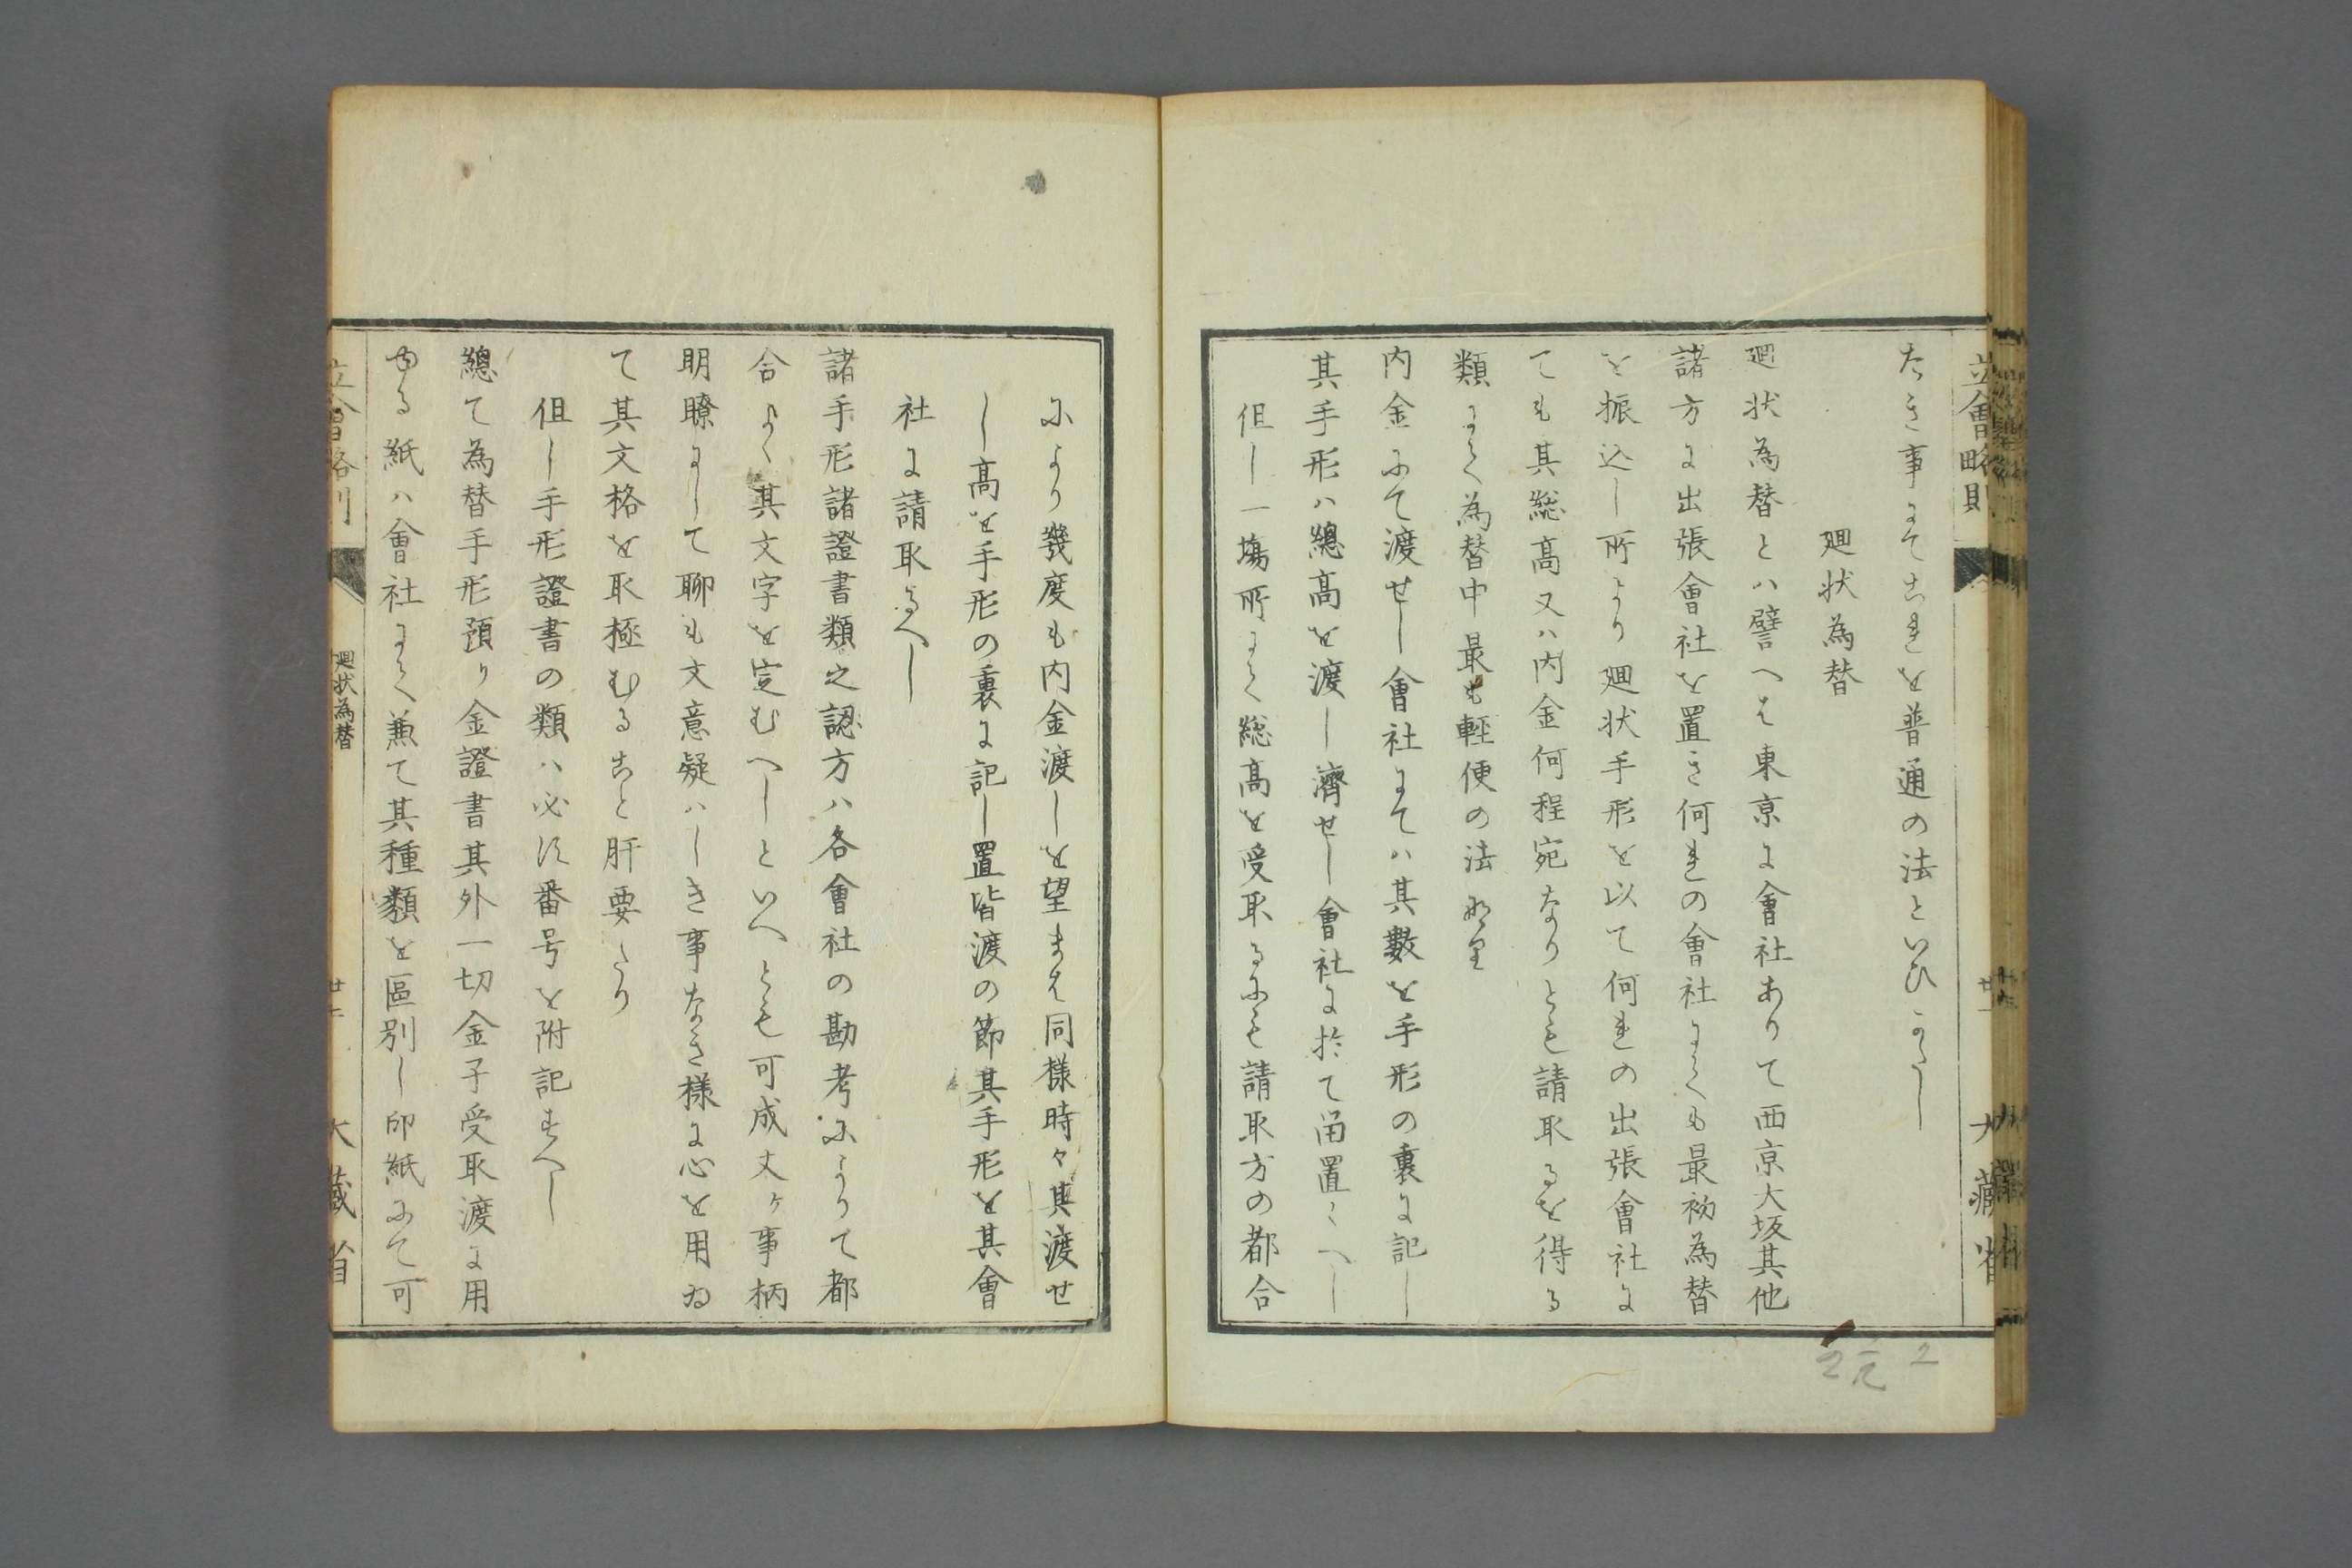 たき事にてこれを普通の法といひかたし
廻状為替
廻状為替とハ譬へは東京に會社ありて西京大坂其他
諸方に出張會社を置き何れの會社にても最初為替
を振込し所より廻状手形を以て何れの出張會社に
ても其総高又ハ内金何程宛なりとも請取るを得る
類にて為替中最も輕便の法なり
内金にて渡せし會社にてハ其數を手形の裏に記し
其手形ハ總高を渡し濟せし會社に於て留置くへし
但し一場所にて総高を受取るにも請取方の都合
により幾度も内金渡しを望まは同様時々其渡せ
し高を手形の裏に記し置皆渡の節其手形を其會
社に請取るへし
諸手形諸證書類之認方ハ各會社の勘考によりて都
合よく其文字を定むへしといへとも可成丈ヶ事柄
明瞭にして聊も文意疑ハしき事なき様に心を用ゐ
て其文格を取極むること肝要たり
但し手形證書の類ハ必す番号を附記すへし
總て為替手形預り金證書其外一切金子受取渡に用
ゆる紙ハ會社にて兼て其種類を區別し印紙にて可
立會略則
廿一
大藏省
廻状為替
大藏省